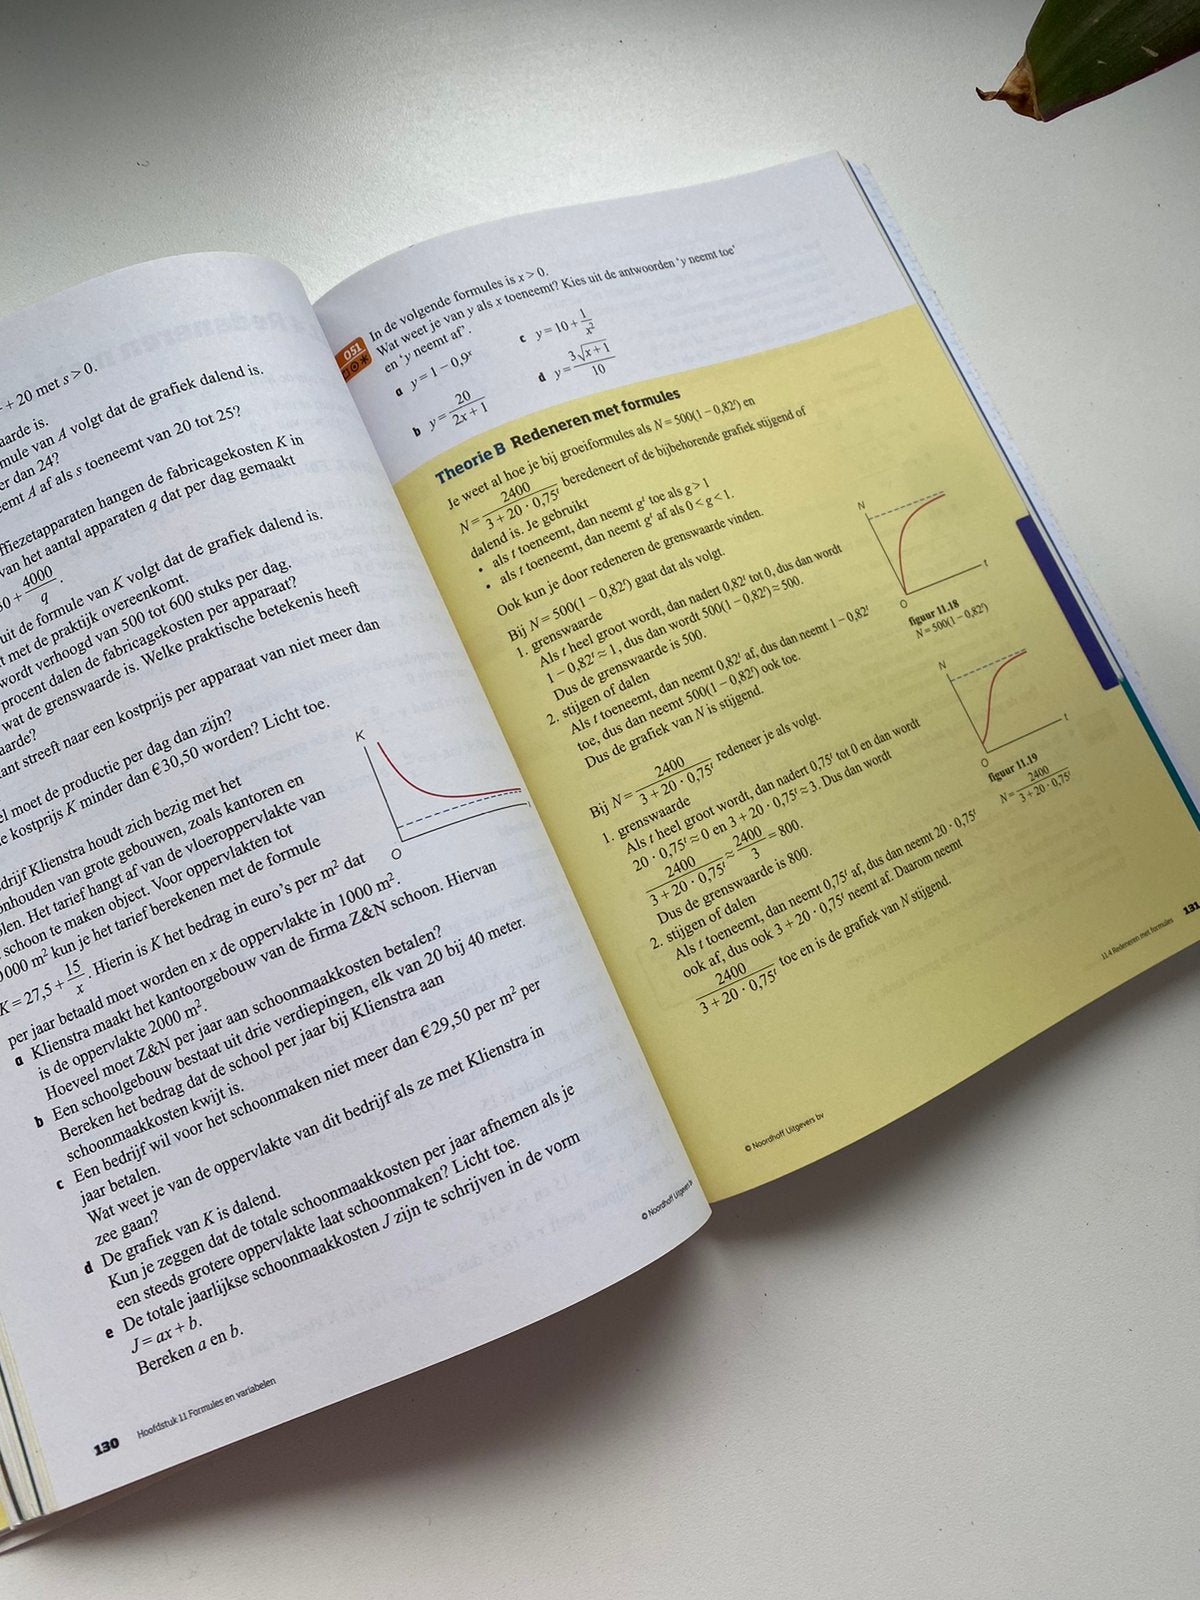 + 20 met s > 0.
aarde is.
mule van A volgt dat de grafiek dalend is.
er dan 24?
eemt A af als s toeneemt van 20 tot 25?
ffiezetapparaten hangen de fabricagekosten K in
van het aantal apparaten q dat per dag gemaakt
50 + 4000/q.
uit de formule van K volgt dat de grafiek dalend is.
t met de praktijk overeenkomt.
wordt verhoogd van 500 tot 600 stuks per dag.
procent dalen de fabricagekosten per apparaat?
wat de grenswaarde is. Welke praktische betekenis heeft
aarde?
ant streeft naar een kostprijs per apparaat van niet meer dan
el moet de productie per dag dan zijn?
e kostprijs K minder dan € 30,50 worden? Licht toe.
drijf Klienstra houdt zich bezig met het
onhouden van grote gebouwen, zoals kantoren en
olen. Het tarief hangt af van de vloeroppervlakte van
schoon te maken object. Voor oppervlakten tot
000 m² kun je het tarief berekenen met de formule
K = 27,5 + 15/x. Hierin is K het bedrag in euro's per m² dat
per jaar betaald moet worden en x de oppervlakte in 1000 m².
a Klienstra maakt het kantoorgebouw van de firma Z&N schoon. Hiervan
is de oppervlakte 2000 m².
Hoeveel moet Z&N per jaar aan schoonmaakkosten betalen?
b Een schoolgebouw bestaat uit drie verdiepingen, elk van 20 bij 40 meter.
Bereken het bedrag dat de school per jaar bij Klienstra aan
schoonmaakkosten kwijt is.
c Een bedrijf wil voor het schoonmaken niet meer dan € 29,50 per m² per
jaar betalen.
Wat weet je van de oppervlakte van dit bedrijf als ze met Klienstra in
zee gaan?
d De grafiek van K is dalend.
Kun je zeggen dat de totale schoonmaakkosten per jaar afnemen als je
een steeds grotere oppervlakte laat schoonmaken? Licht toe.
e De totale jaarlijkse schoonmaakkosten J zijn te schrijven in de vorm
J = ax + b.
Bereken a en b.
K
O
130 Hoofdstuk 11 Formules en variabelen
© Noordhoff Uitgevers b
O51 In de volgende formules is x > 0.
Wat weet je van y als x toeneemt? Kies uit de antwoorden 'y neemt toe'
en 'y neemt af'.
a y = 1 − 0,9ˣ
b y = 20/(2x + 1)
c y = 10 + 1/x²
d y = 3√(x + 1)/10
Theorie B Redeneren met formules
Je weet al hoe je bij groeiformules als N = 500(1 − 0,82ᵗ) en
N = 2400/(3 + 20 · 0,75ᵗ) beredeneert of de bijbehorende grafiek stijgend of
dalend is. Je gebruikt
• als t toeneemt, dan neemt gᵗ toe als g > 1
• als t toeneemt, dan neemt gᵗ af als 0 < g < 1.
Ook kun je door redeneren de grenswaarde vinden.
Bij N = 500(1 − 0,82ᵗ) gaat dat als volgt.
1. grenswaarde
Als t heel groot wordt, dan nadert 0,82ᵗ tot 0, dus dan wordt
1 − 0,82ᵗ ≈ 1, dus dan wordt 500(1 − 0,82ᵗ) ≈ 500.
Dus de grenswaarde is 500.
2. stijgen of dalen
Als t toeneemt, dan neemt 0,82ᵗ af, dus dan neemt 1 − 0,82ᵗ
toe, dus dan neemt 500(1 − 0,82ᵗ) ook toe.
Dus de grafiek van N is stijgend.
Bij N = 2400/(3 + 20 · 0,75ᵗ) redeneer je als volgt.
1. grenswaarde
Als t heel groot wordt, dan nadert 0,75ᵗ tot 0 en dan wordt
20 · 0,75ᵗ ≈ 0 en 3 + 20 · 0,75ᵗ ≈ 3. Dus dan wordt
2400/(3 + 20 · 0,75ᵗ) ≈ 2400/3 = 800.
Dus de grenswaarde is 800.
2. stijgen of dalen
Als t toeneemt, dan neemt 0,75ᵗ af, dus dan neemt 20 · 0,75ᵗ
ook af, dus ook 3 + 20 · 0,75ᵗ neemt af. Daarom neemt
2400/(3 + 20 · 0,75ᵗ) toe en is de grafiek van N stijgend.
N
t
O
figuur 11.18
N = 500(1 − 0,82ᵗ)
N
t
O
figuur 11.19
N = 2400/(3 + 20 · 0,75ᵗ)
© Noordhoff Uitgevers bv
11.4 Redeneren met formules 131